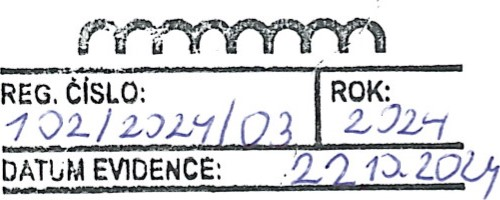 REG. ČÍSLO: ROK:
102/2024/03 2024
DATUM EVIDENCE: 22.10.2024